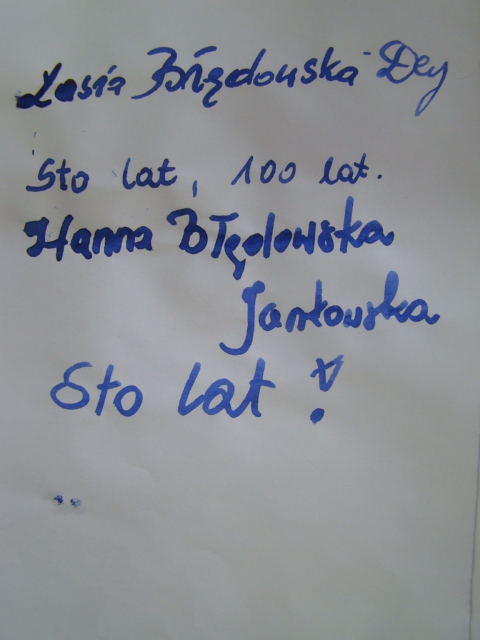 Zosia Błędowska - Dey
Sto lat, 100 lat.
Hanna Błędowska
Jankowska
Sto lat!